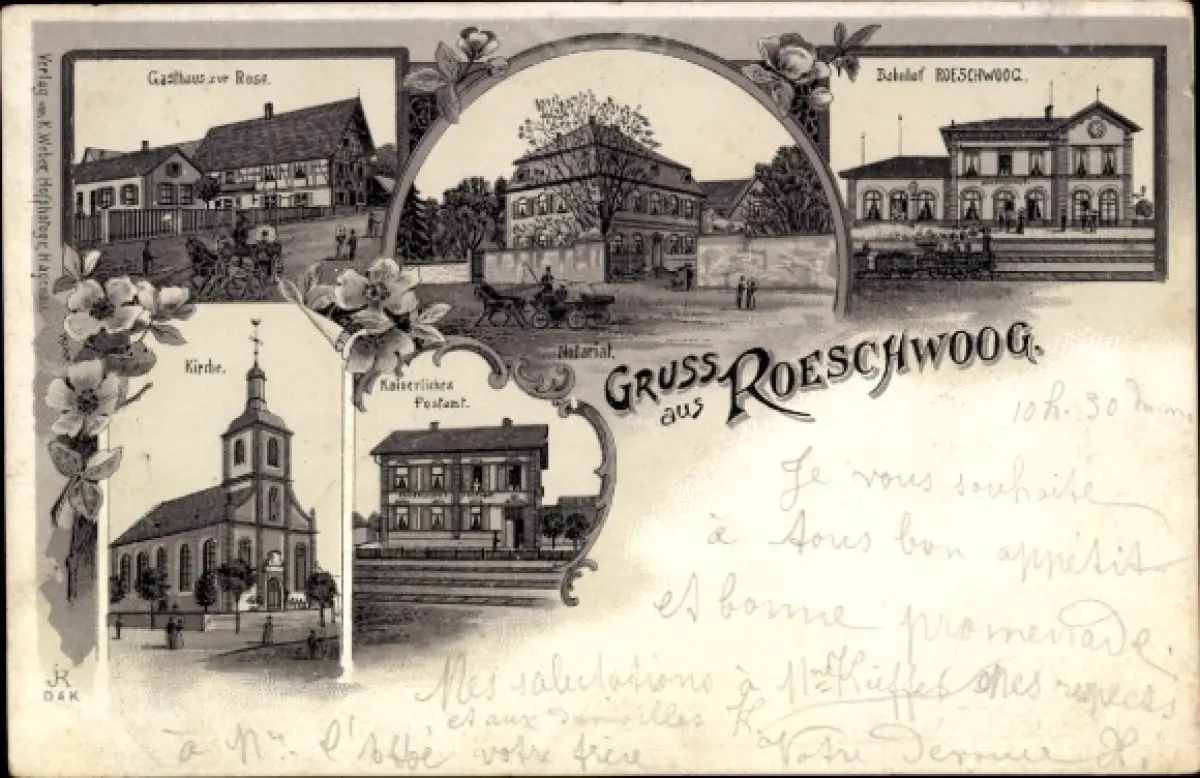 Verlag von K. Weber, Hofphotogr. Hagenau
Gasthaus zur Rose.
Bahnhof ROESCHWOOG.
Notariat.
Kirche.
Kaiserliches
Postamt.
GRUSS
aus ROESCHWOOG.
10 h. 30 du m
Je vous souhaite
à tous bon appétit
et bonne promenade.
Mes salutations à Mme Kieffer Mes respects
et aux demoiselles K
à Mr. l'Abbé votre frère
Votre Jérome H.
JR
D & K